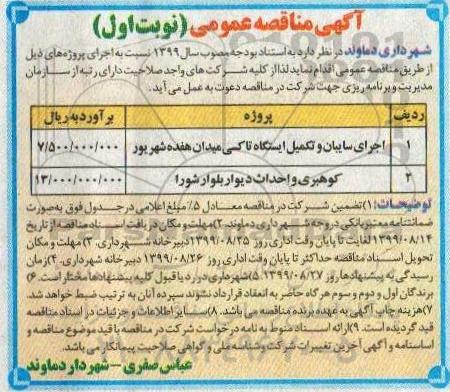 آگهی مناقصه عمومی (نوبت اول)
شهرداری دماوند در نظر دارد به استناد بودجه مصوب سال ۱۳۹۹ نسبت به اجرای پروژه‌های ذیل
از طریق مناقصه عمومی اقدام نماید لذا از کلیه شرکت‌های واجد صلاحیت دارای رتبه از سازمان
مدیریت و برنامه ریزی جهت شرکت در مناقصه دعوت به عمل می آید.
ردیف پروژه برآورد به ریال
۱ اجرای سایبان و تکمیل ایستگاه تاکسی میدان هفده شهریور ۷/۵۰۰/۰۰۰/۰۰۰
۲ کوهبری و احداث دیوار بلوار شورا ۱۳/۰۰۰/۰۰۰/۰۰۰
توضیحات: ۱) تضمین شرکت در مناقصه معادل ۵٪ مبلغ اعلامی در جدول فوق به صورت
ضمانتنامه معتبر بانکی در وجه شهرداری دماوند. ۲) مهلت و مکان دریافت اسناد مناقصه از تاریخ
۱۳۹۹/۰۸/۱۴ لغایت تا پایان وقت اداری روز ۱۳۹۹/۰۸/۲۵ دبیرخانه شهرداری. ۳) مهلت و مکان
تحویل اسناد مناقصه حداکثر تا پایان وقت اداری روز ۱۳۹۹/۰۸/۲۶ دبیرخانه شهرداری. ۴) زمان
رسیدگی به پیشنهادها روز ۱۳۹۹/۰۸/۲۷. ۵) شهرداری در رد یا قبول کلیه پیشنهادها مختار است. ۶)
برندگان اول و دوم و سوم هرگاه حاضر به انعقاد قرارداد نشوند سپرده آنان به ترتیب ضبط خواهد شد.
۷) هزینه چاپ آگهی به عهده برنده مناقصه می باشد. ۸) سایر اطلاعات و جزئیات در اسناد مناقصه
قید گردیده است. ۹) ارائه اسناد منوط به نامه درخواست شرکت در مناقصه با قید موضوع مناقصه و
اساسنامه و آگهی آخرین تغییرات شرکت و شناسه ملی و گواهی صلاحیت پیمانکار می باشد.
عباس صفری - شهردار دماوند